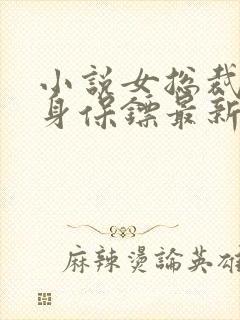 小説女総裁
身保鏢最新
麻辣燙論英雄